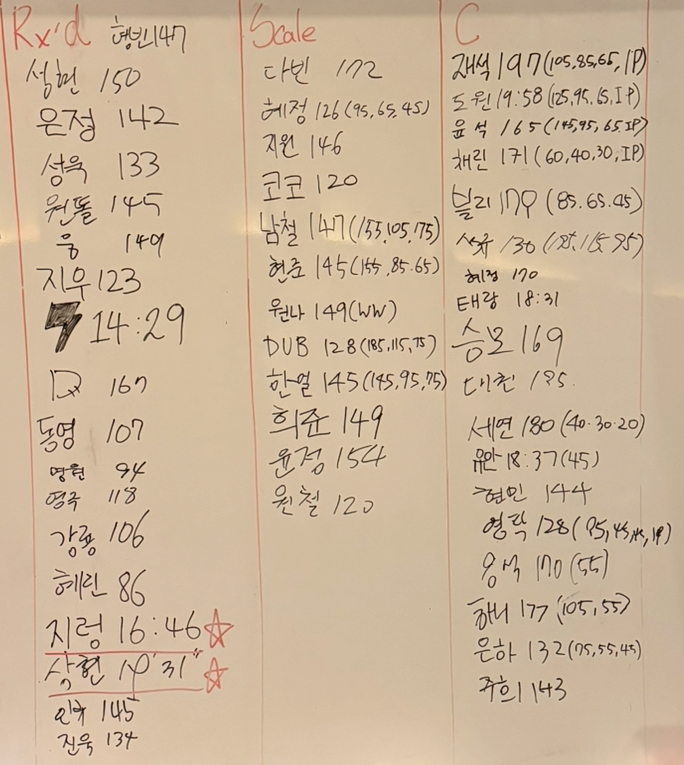 Rx'd 형빈147
성현 150
은정 142
성욱 133
원똘 145
웅 149
지우 123
14:29
167
동영 107
명원 94
영국 118
강룡 106
혜린 86
지렁 16:46
상현 19'31"
145
진욱 134
Scale
다빈 172
혜정 126 (95,65,45)
지원 146
코코 120
남철 147 (155,105,75)
현준 145 (155,85.65)
원나 149 (WW)
DUB 128 (185,115,75)
한열 145 (145,95,75)
희준 149
윤정 154
원철 120
C
재석 197 (105,85,65,IP)
도원 19:58 (125,95,65,IP)
윤석 165 (145,95,65,IP)
채린 171 (60,40,30,IP)
블리 179 (85.65.45)
130
혜정 170
태랑 18:31
승모 169
세연 180 (40.30.20)
유안 18:37 (45)
현민 144
영탁 128
용석 170 (55)
하니 177 (105,55)
은하 132 (75,55,45)
주희 143